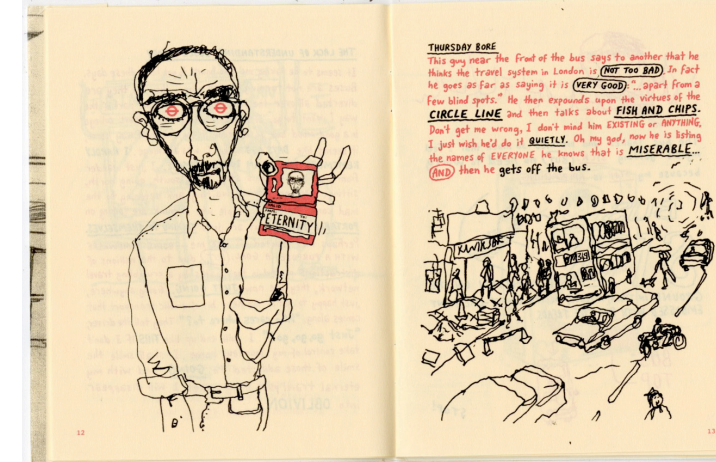 ETERNITY
12
THURSDAY BORE
This guy near the front of the bus says to another that he
thinks the travel system in London is NOT TOO BAD. In fact
he goes as far as saying it is VERY GOOD: "...apart from a
few blind spots." He then expounds upon the virtues of the
CIRCLE LINE and then talks about FISH AND CHIPS.
Don't get me wrong, I don't mind him EXISTING or ANYTHING,
I just wish he'd do it QUIETLY. Oh my god, now he is listing
the names of EVERYONE he knows that is MISERABLE...
AND then he gets off the bus.
13